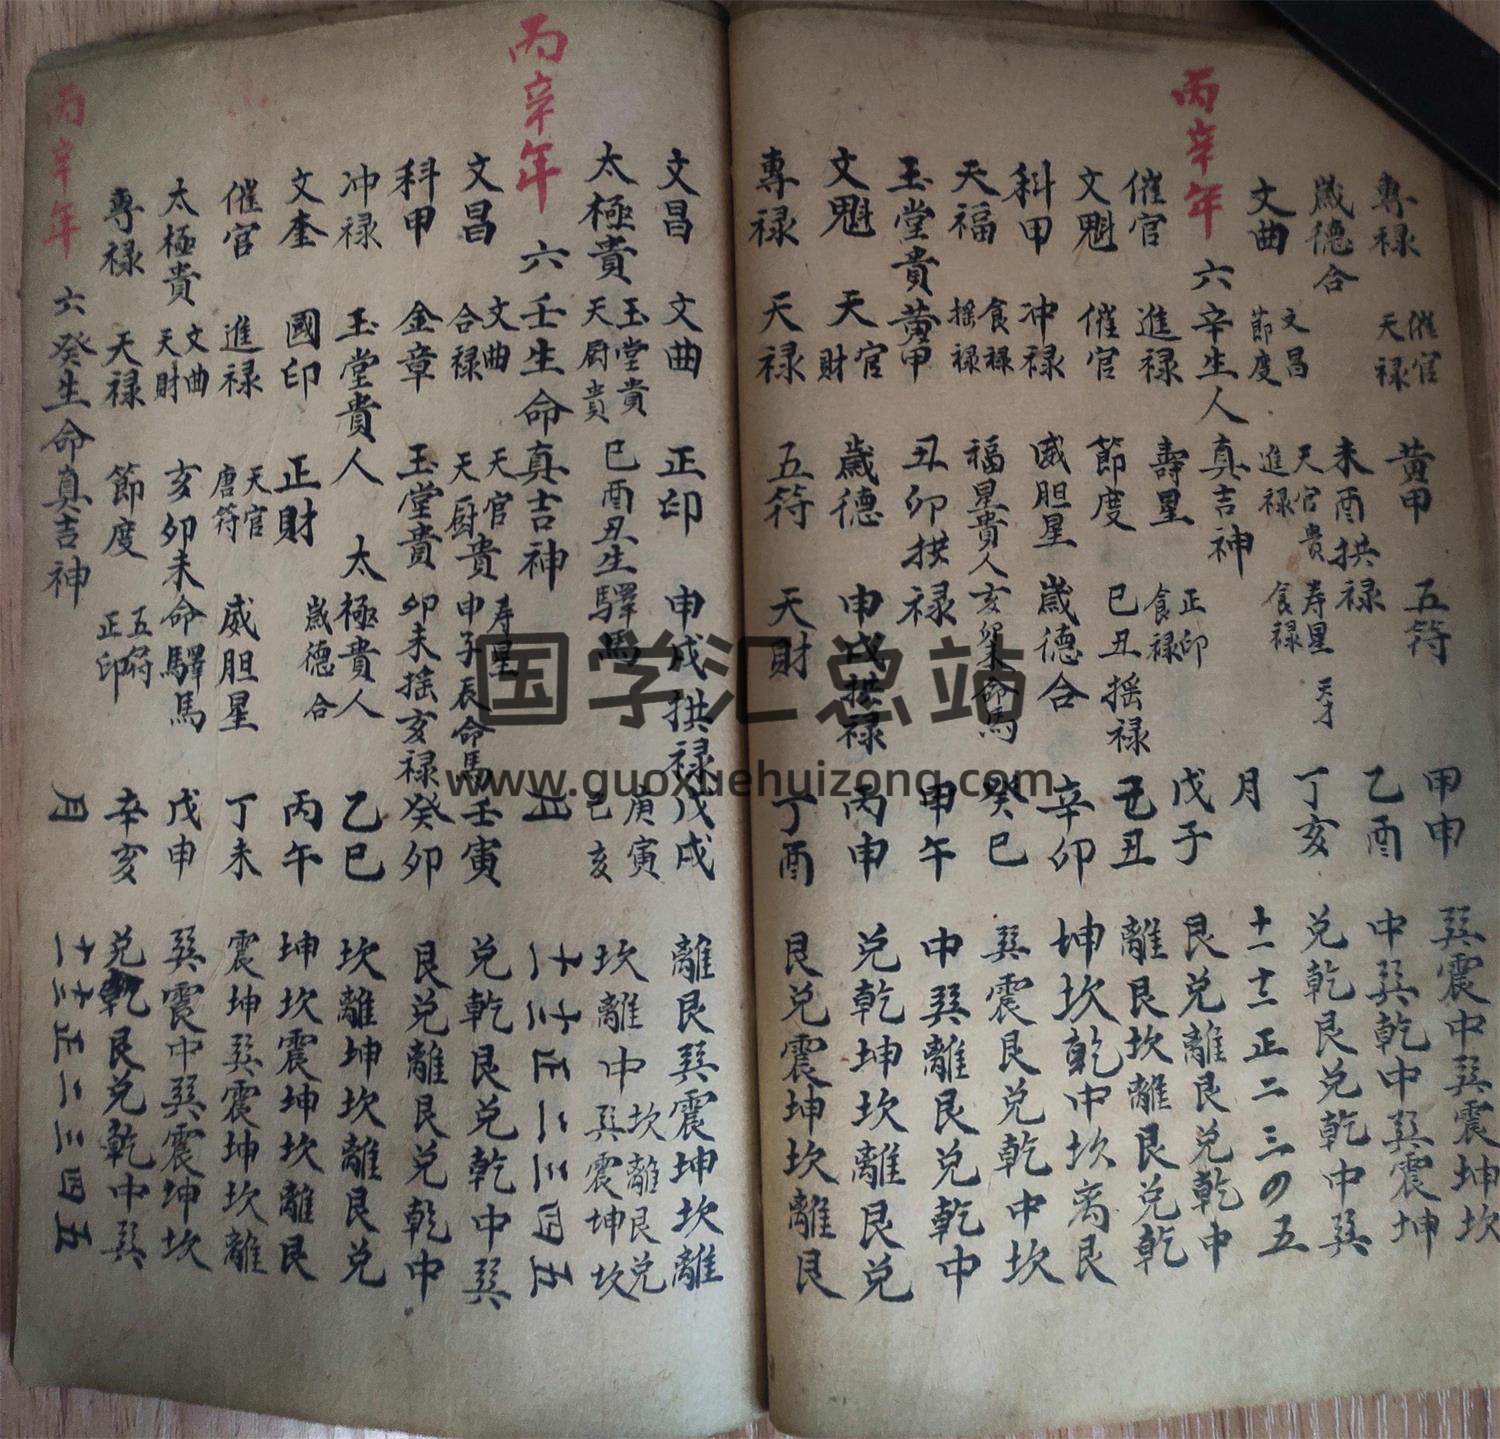 專祿 催官 天祿 黃甲 五符 甲申 巽震中巽震坤坎
歲德合 未酉拱祿 乙酉 中巽乾中巽震坤
文曲 文昌 節度 天官貴 進祿 寿星 食祿 天才 丁亥 兑乾艮兑乾中巽
丙辛年 六辛生人真吉神 月 十一 十二 正 二 三 四 五
催官 進祿 壽星 正印 食祿 戊子 艮兑離艮兑乾中
文魁 催官 節度 巳丑摇祿 己丑 離艮坎離艮兑乾
科甲 冲祿 威胆星 歲德合 辛卯 坤坎乾中坎离艮
天福 食祿 摇祿 福星貴人 亥卯未命馬 癸巳 巽震艮兑乾中坎
玉堂貴 黃甲 丑卯拱祿 甲午 中巽離艮兑乾中
文魁 天官 天財 歲德 申戌拱祿 丙申 兑乾坤坎離艮兑
專祿 天祿 五符 天財 丁酉 艮兑震坤坎離艮
文昌 文曲 正印 申戌拱祿 戊戌 離艮巽震坤坎離
太極貴 玉堂貴 天厨貴 巳酉丑生驛馬 庚寅 己亥 坎離中坎離艮兑 巽震坤坎
丙辛年 六壬生命真吉神 月 十一 十二 正 二 三 四 五
文昌 文曲 合祿 天官 天厨貴 寿星 申子辰命馬 壬寅 兑乾艮兑乾中巽
科甲 金章 玉堂貴 卯未摇亥祿 癸卯 艮兑離艮兑乾中
冲祿 玉堂貴人 太極貴人 乙巳 坎離坤坎離艮兑
文奎 國印 正財 歲德合 丙午 坤坎震坤坎離艮
催官 進祿 天官 唐符 威胆星 丁未 震坤巽震坤坎離
太極貴 文曲 天財 亥卯未命驛馬 戊申 巽震中巽震坤坎
專祿 天祿 節度 五符 正印 辛亥 兑乾艮兑乾中巽
丙辛年 六癸生命真吉神 月 十一 十二 正 二 三 四 五
国学汇总站
www.guoxuehuizong.com